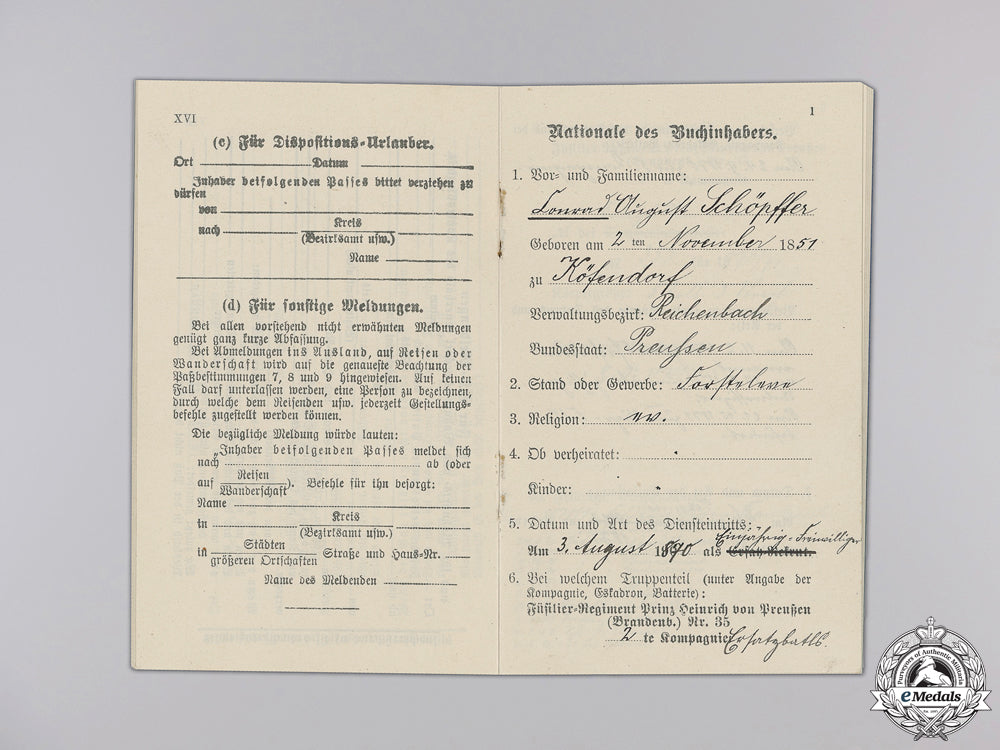 XVI
(c) Für Dispositions-Urlauber.
Ort Datum
Inhaber beifolgenden Passes bittet verziehen zu
dürfen
von
nach Kreis
(Bezirksamt usw.)
Name
(d) Für sonstige Meldungen.
Bei allen vorstehend nicht erwähnten Meldungen
genügt ganz kurze Abfassung.
Bei Abmeldungen ins Ausland, auf Reisen oder
Wanderschaft wird auf die genaueste Beachtung der
Paßbestimmungen 7, 8 und 9 hingewiesen. Auf keinen
Fall darf unterlassen werden, eine Person zu bezeichnen,
durch welche dem Reisenden usw. jederzeit Gestellungs-
befehle zugestellt werden können.
Die bezügliche Meldung würde lauten:
„Inhaber beifolgenden Passes meldet sich
nach ab (oder
auf Reisen
Wanderschaft). Befehle für ihn besorgt:
Name
in Kreis
(Bezirksamt usw.)
in Städten
größeren Ortschaften Straße und Haus-Nr.
Name des Meldenden
1
Nationale des Buchinhabers.
1. Vor- und Familienname:
Conrad August Schöpffer
Geboren am 2 ten November 1851
zu
Verwaltungsbezirk: Reichenbach
Bundesstaat: Preußen
2. Stand oder Gewerbe: Forsteleve
3. Religion: ev.
4. Ob verheiratet:
Kinder:
5. Datum und Art des Diensteintritts:
Einjährig-Freiwilliger
Am 3. August 1890 als Ersatz-Rekrut.
6. Bei welchem Truppenteil (unter Angabe der
Kompagnie, Eskadron, Batterie):
Füsilier-Regiment Prinz Heinrich von Preußen
(Brandenb.) Nr. 35
2 te Kompagnie Ersatzbatls.
Purveyors of Authentic Militaria
eMedals